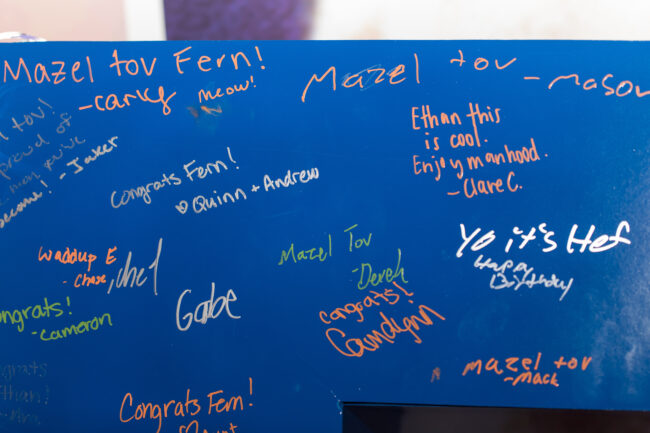 Mazel tov Fern!
- carly meow!
Mazel tov
- mason
tov!
proud of
become! - Jaker
Congrats Fern!
Quinn + Andrew
Ethan this
is cool.
Enjoy manhood.
- Clare C.
Waddup E
- Chase
Gabe
Mazel Tov
- Derek
Yo it's Hef
Happy
Birthday
ongrats!
- cameron
congrats!
Camdynn
mazel tov
- Mack
ongrats
Ethan
Congrats Fern!